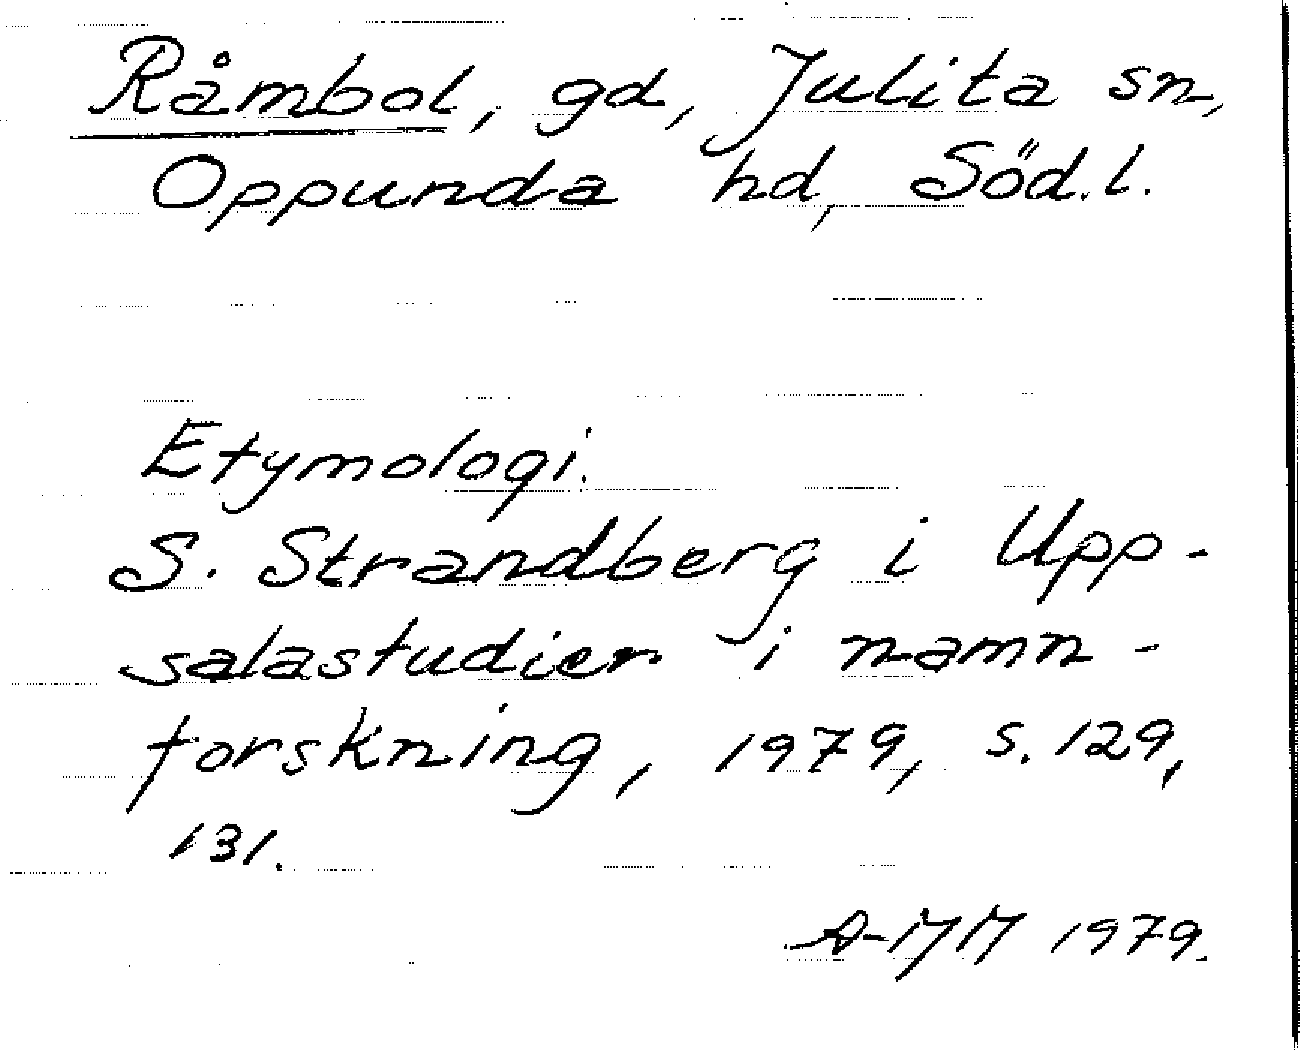 Råmbol, gd, Julita sn,
Oppunda hd, Söd.l.
Etymologi.
S. Strandberg i Upp-
salastudier i namn-
forskning, 1979, s. 129,
131.
1979.